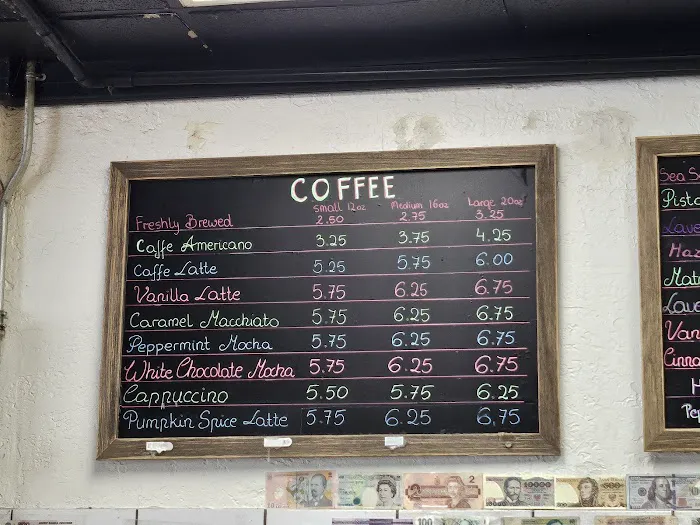 COFFEE
Small 12oz Medium 16oz Large 20oz
Freshly Brewed 2.50 2.75 3.25
Caffe Americano 3.25 3.75 4.25
Caffe Latte 5.25 5.75 6.00
Vanilla Latte 5.75 6.25 6.75
Caramel Macchiato 5.75 6.25 6.75
Peppermint Mocha 5.75 6.25 6.75
White Chocolate Mocha 5.75 6.25 6.75
Cappuccino 5.50 5.75 6.25
Pumpkin Spice Latte 5.75 6.25 6.75
Sea S
Pista
Lave
Haz
Mat
Lave
Van
Cinna
H
Pep
10000
100